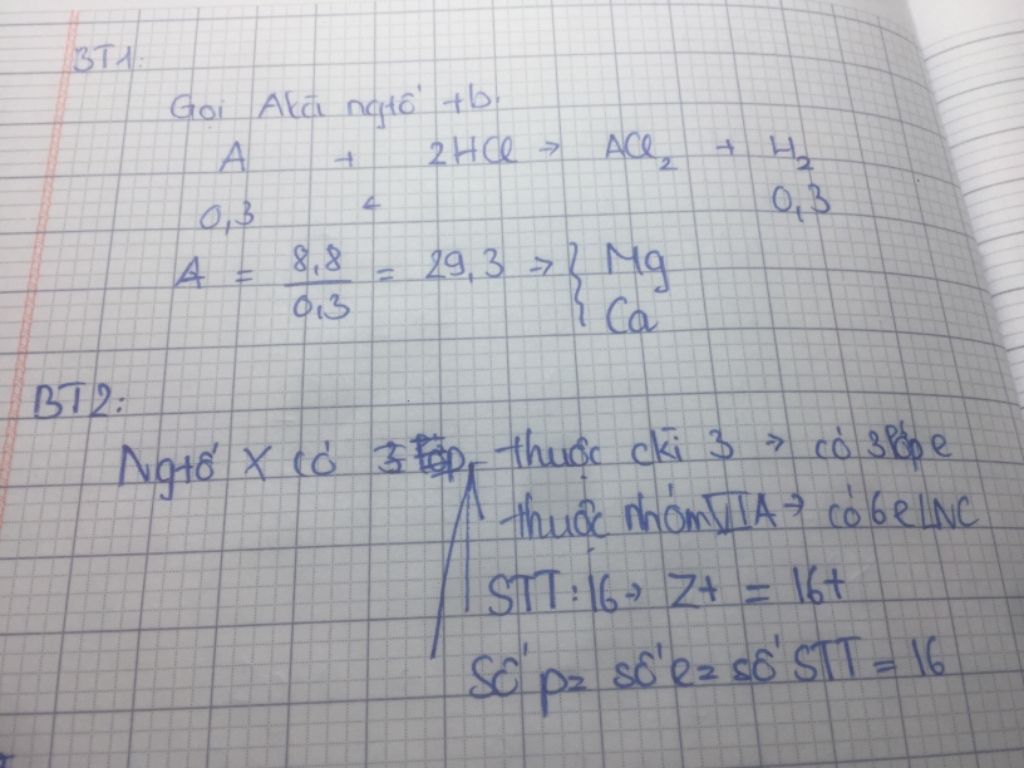 BT1:
Gọi A là ngtố tb.
A + 2HCl → ACl₂ + H₂
0,3 ← 0,3
A = 8,8 / 0,3 = 29,3 → { Mg
Ca
BT2:
Ngtố X có 3 thuộc ckì 3 → có 3 lớp e
thuộc nhóm VIA → có 6 e LNC
STT: 16 → Z+ = 16+
Số p = số e = số STT = 16